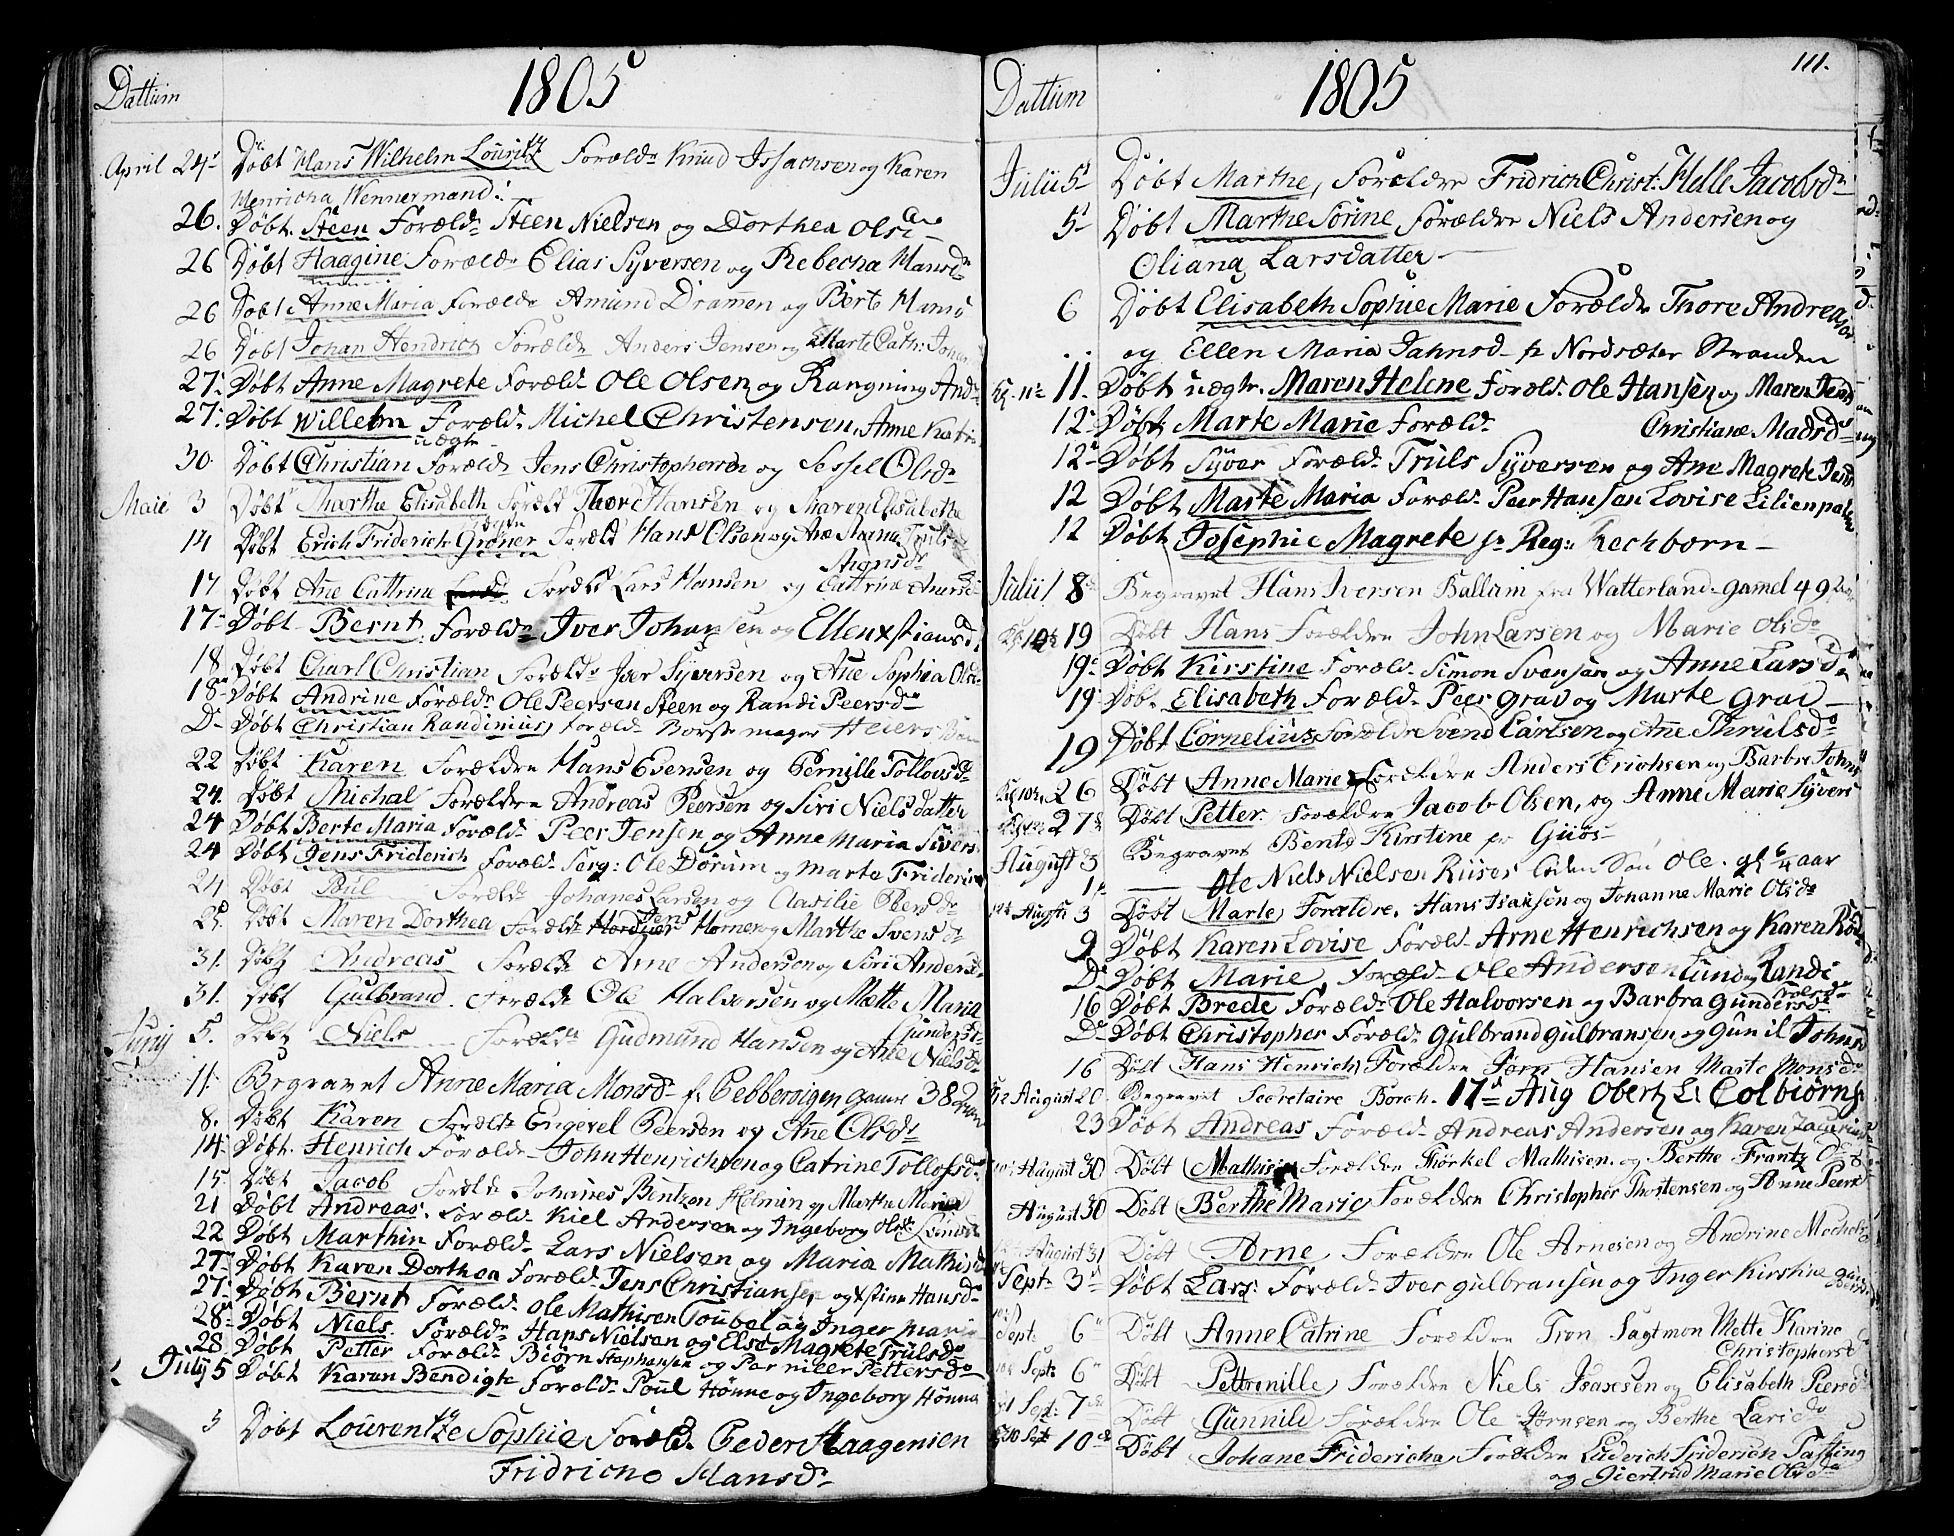 Dattum 1805
April 24 Døbt Hans Wilhelm Louritz Foræld Knud Issachsen og Karen
Henricha Wennermand:
26. Døbt. Steen Foræld Steen Nielsen og Dorthea Ols
26 Døbt Haagine Foræld Elias Syversen og Rebecha Hansd
26 Døbt Anne Maria Foræld Amund Dramen og Berte Hans
26 Døbt Johan Hendrich Foræld Anders Jensen og Marte Cath:
27 Døbt Anne Magrete Foræld Ole Olsen og Rangning And
27 Døbt Willelm Foræld Michel Christensen, Anne Katr
uægte
30 Døbt Christian Foræld Jens Christophersen og Sessel Olsd
Maii 3 Døbt Marthe Elisabeth Foræld Thore Hansen og Maren Elisabethe
14 Døbt Erich Friderich Grøner Foræld Hans Olsen og Ane Maria
17 Døbt Ane Cattrine Foræld Lars Hansen og Cattrine
17 Døbt Bernt Foræld Iver Johansen og Ellen Xstiansd
18 Døbt Charl Christian Foræld Iver Syversen og Ane Sophia Ols
18 Døbt Andrine Foræld Ole Peersen Steen og Randi Peersd
D Døbt Christian Randinius, Foræld
22 Døbt Karen Forældre Hans Evensen og Pernille Tollovsd
24. Døbt Michal Forældre Andreas Peersen og Siri Nielsdatter
24 Døbt Berte Maria Foræld Peer Jensen og Anne Maria Sivers
24 Døbt Jens Friderich Foræld Serg: Ole Dørum og Marte Frideric
24 Døbt Paul Foræld Johanes Larsen og Peersd
Døbt Maren Dorthea Foræld Jens Horner og Marthe Svensd
31. Døbt Andreas Foræld Arne Andersen og Siri Andersd
31. Døbt Gulbrand. Foræld Ole Halvorsen og Mette Maria
Gundersd
Junij 5. Døbt Niels Foræld Gudmund Hansen og Ane Nielsd
11 Begravet Anne Maria Monsd f. Pebbervigen gamel 38
8. Døbt Karen Foræld Engevel Peersen og Ane Olsd
14 Døbt. Henrich Foræld John Henrichsen og Catrine Tollofsd
15 Døbt Jacob Foræld Johanes Bentzen Helmin og Marthe Maria
21 Døbt Andreas. Foræld Kiel Andersen og Ingeborg
22 Døbt Marthin Foræld Lars Nielsen og Maria Mathisd
27 Døbt Karen Dorthea Foræld Jens Christiansen og Xstine Hansd
27 Døbt Bernt Foræld Ole Mathisen Toubel og Inger Maria
28 Døbt Niels. Foræld Hans Nielsen og Else Magrete Trulsd
28 Døbt Petter Foræld Biørn Staphansen og Pernille Pettersd
Julij 5 Døbt Karen Bendigte Foræld Poul Hønne og Ingeborg Hønne
5 Døbt Lourentze Sophie Foræld Peder Haagensen
Fridriche Hansd
Dattum 1805 111.
Julii 5 Døbt Marthe, Forældre Fridrich Christ: Helle Jacobsd
5 Døbt Marthe Sørine Forældre Niels Andersen og
Oliana Larsdatter
6 Døbt Elisabeth Sophie Marie Forældr Thore Andreasen
og Ellen Maria Jahnsd fr Nordsæter Stranden
11. Døbt uægte. Maren Helene Foræld. Ole Hansen og Maren Jens
12 Døbt Marte Marie Foræld Christiane Madsd
12 Døbt Syver Foræld Truls Syversen og Ane Magrete Jens
12 Døbt Marte Maria Foræld Peer Hansen Lovise Lilienpalm
12 Døbt Josephie Magrete fr Reg: Rechborn
Julii 8 Begravet Hans Iversen Ballum fra Watterland gamel 49
19 Døbt Hans Forældre John Larsen og Marie Olsd
19 Døbt Kirstine Foræld Simon Svensen og Anne Larsd
19 Døb. Elisabeth Foræld Peer Grav og Marte Grav
19 Døbt Cornelius Forældre Svend Carlsen og Ane Thrulsd
26 Døbt Anne Marie Forældre Anders Erichsen og Barbra Johns
27 Døbt Petter Forældre Jacob Olsen, og Anne Marie Syvers
August 3 Begravet Bente Kirstine fr Giiøs
Ole Niels Nielsen Riises liden Søn Ole. gl 6/4 aar
August 3 Døbt Marte, Forældre. Hans Isaksen og Johanne Marie Olsd
9 Døbt Karen Lovise Foræld Arne Henrichsen og Karen
D Døbt Marie Foræld Ole Andersen Lund og Randi
16 Døbt Brede Foræld Ole Halvorsen og Barbra Gundersd
D Døbt Christopher Foræld Gulbrand Gulbransen og Gunil Johns
16 Døbt Hans Henrich Forældre Jørn Hansen Marte Monsd
August 20 Begravet Secretaire Borch. 17 Aug Obert Lt Colbiørns
23 Døbt Andreas Foræld Andreas Andersen og Karen Zacarias
August 30 Døbt Mathis Forældre Thorkel Mathisen. og Berthe Frantz
August 30 Døbt Berthe Marie Forældre Christopher Thostensen og Anne Peers
August 31 Døbt Arne Forældre Ole Arnesen og Andrine Mechels
Sept 3 Døbt Lars Foræld Iver Gulbransen og Inger Kirstine
Sept: 6 Døbt Anne Catrine Forældre Tron Sagtmon Mette Karine
Christophersd
Sept: 6 Døbt Pettrenille, Forældre Niels Isacsen og Elisabeth Peersd
Sept: 7 Døbt Gunnild Forældre Ole Jørnsen og Berthe Larsd
Sept 10 Døbt Johane Fridericha, Forældre Luderich Friderich Tassing
og Giertrud Marie Olsd